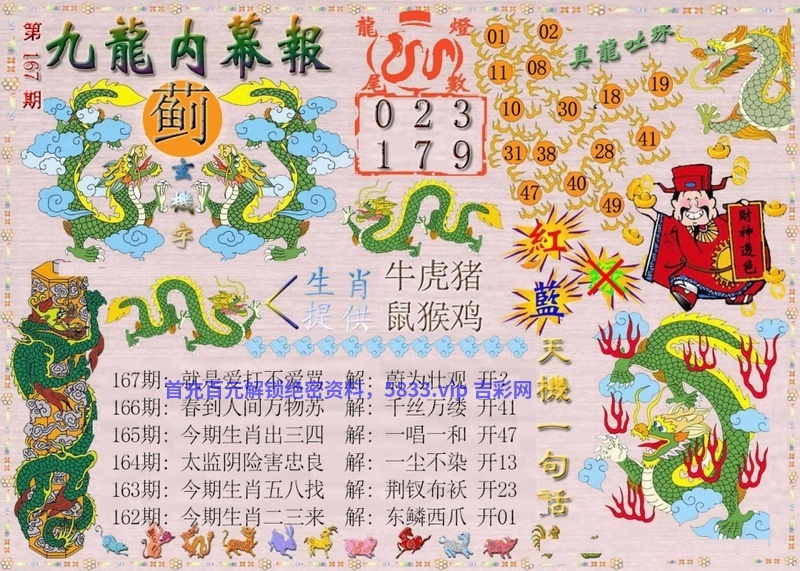 第167期
九龍内幕報
蓟
玄機字
龍燈
尾數
0 2 3
1 7 9
01 02
11 08
10 30 18 19
31 38 28 41
47 40 49
真龍吐珠
紅
藍
財神透色
生肖提供
牛虎猪
鼠猴鸡
167期: 就是爱打不爱骂 解: 蔚为壮观 开?
首充百元解锁绝密资料，5833.vip 吉彩网
166期: 春到人间万物苏 解: 千丝万缕 开41
165期: 今期生肖出三四 解: 一唱一和 开47
164期: 太监阴险害忠良 解: 一尘不染 开13
163期: 今期生肖五八找 解: 荆钗布袄 开23
162期: 今期生肖二三来 解: 东鳞西爪 开01
天機一句話